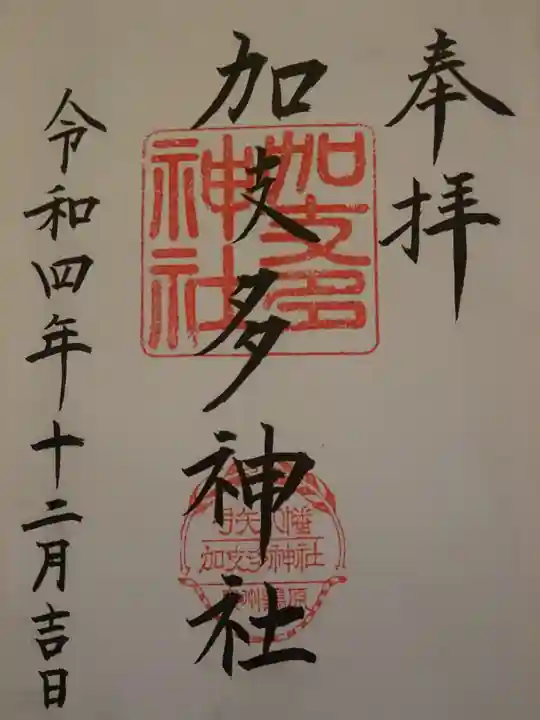 奉拝
加支多神社
加支多
神社
弓矢八幡
加支多神社
州鶉原
令和四年十二月吉日